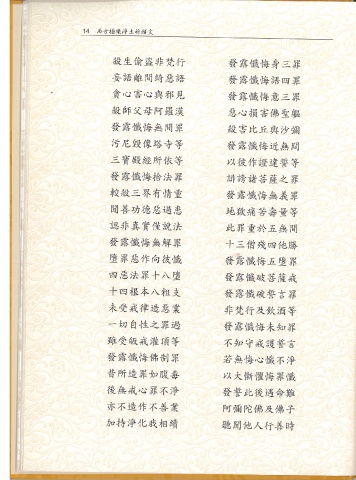 14 西方極樂淨土祈禱文
殺生偷盜非梵行 發露懺悔身三罪
妄語離間綺惡語 發露懺悔語四罪
貪心害心與邪見 發露懺悔意三罪
殺師父母阿羅漢 惡心損害佛聖軀
發露懺悔無間罪 殺害比丘與沙彌
污尼毀像塔寺等 發露懺悔近無間
三寶殿經所依等 以彼作證違誓等
發露懺悔捨法罪 誹謗諸菩薩之罪
較殺三界有情重 發露懺悔無義罪
聞善功德惡過患 地獄痛苦壽量等
認非真實僅說法 此罪重於五無間
發露懺悔無解罪 十三僧殘四他勝
墮罪惡作向彼懺 發露懺悔五墮罪
四惡法罪十八墮 發露懺破菩薩戒
十四根本八粗支 發露懺破誓言罪
未受戒律造惡業 非梵行及飲酒等
一切自性之罪過 發露懺悔未知罪
雖受皈戒灌頂等 不知守戒護誓言
發露懺悔佛制罪 若無悔心懺不淨
昔所造罪如腹毒 以大慚懼悔罪懺
後無戒心罪不淨 發誓此後遇命難
亦不造作不善業 阿彌陀佛及佛子
加持淨化我相續 聽聞他人行善時